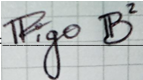 Figo B²